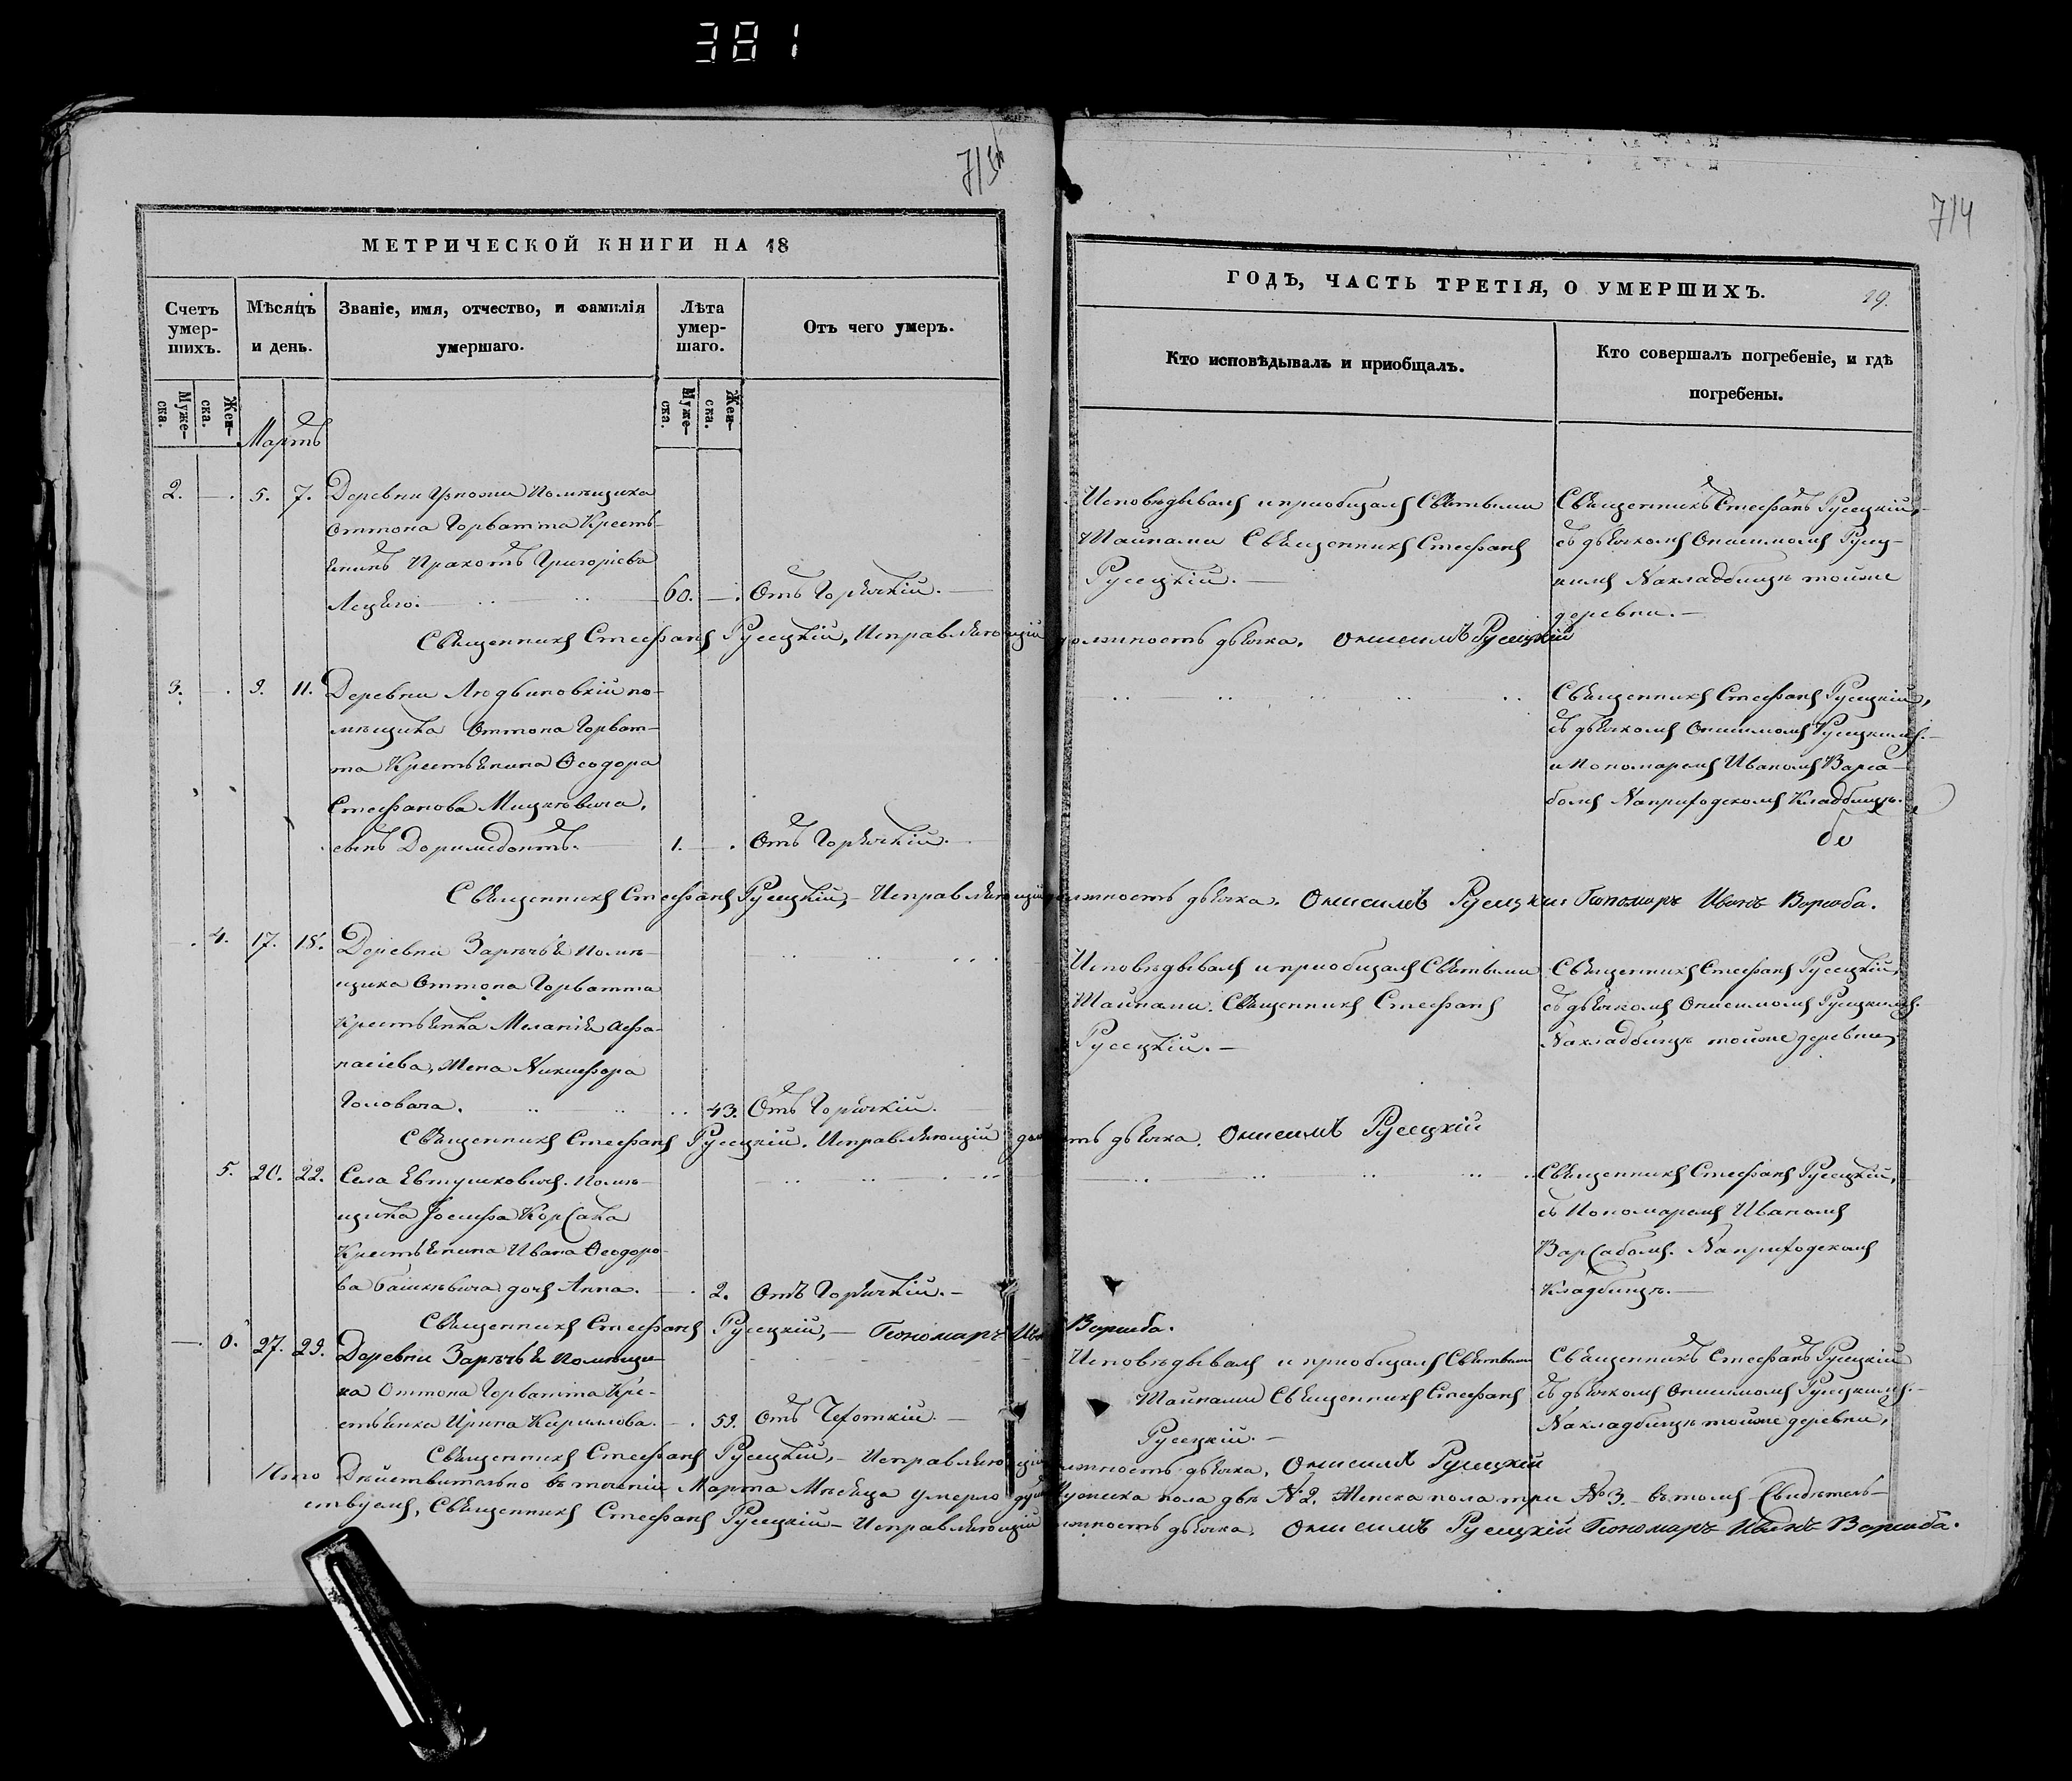 381
713
714
МЕТРИЧЕСКОЙ КНИГИ НА 18
ГОДЪ, ЧАСТЬ ТРЕТІЯ, О УМЕРШИХЪ.
Счетъ умер-шихъ.
Мѣсяцъ и день.
Званіе, имя, отчество, и фамилія умершаго.
Лѣта умер-шаго.
Отъ чего умеръ.
Кто исповѣдывалъ и приобщалъ.
Кто совершалъ погребеніе, и гдѣ погребены.
Муже-ска.
Жен-ска.
Муже-ска.
Жен-ска.
Мартъ
2. — 5. 7. Деревни помѣщика
Оттона Горватта Кресть-
янинъ Григоріева
60. — Отъ Горячкій.
Исповѣдывалъ и приобщалъ Святыми
Тайнами Священникъ Стефанъ
Русецкій. —
Священникъ Стефанъ Русецкій,
съ дьячкомъ Онисимомъ Русец-
кимъ На кладбищѣ тойже
деревни. —
Священникъ Стефанъ Русецкій, Исправляющій должность дьячка. Онисимъ Русецкій
3. — 9. 11. Деревни Людвиновкій по-
мѣщика Оттона Горват-
та Крестьянина Ѳеодора
Стефанова Мицкѣвича,
сынъ Доримедонтъ. 1. — Отъ Горячкій.
Священникъ Стефанъ Русецкій,
съ дьячкомъ Онисимомъ Русецкимъ.
и Пономаремъ Иваномъ Варса-
бомъ На приходскомъ Кладбищѣ.
Священникъ Стефанъ Русецкій — Исправляющій должность дьячка. Онисимъ Русецкий Пономарь Иванъ
— 4. 17. 18. Деревни Зарѣчья Помѣ-
щика Оттона Горватта
Крестьянка Меланія Афа-
насіева, Жена Никифора
Головача. 43. Отъ Горячкій.
Исповѣдывалъ и приобщалъ Святыми
Тайнами. Священникъ Стефанъ
Русецкій. —
Священникъ Стефанъ Русецкій,
съ дьячкомъ Онисимомъ Русецкимъ.
На кладбищѣ тойже деревни,
Священникъ Стефанъ Русецкій. Исправляющій должность дьячка. Онисимъ Русецкій
5. 20. 22. Села Евтушковичъ. Помѣ-
щика Іосифа Корсака
Крестьянина Ивана Ѳеодоро-
ва Башкѣвича дочь Анна. — 2. Отъ Горячкій. —
Священникъ Стефанъ Русецкій,
съ Пономаремъ Иваномъ
Варсабомъ. На приходскомъ
Кладбищѣ. —
Священникъ Стефанъ Русецкій, — Пономарь Иванъ
— 6. 27. 29. Деревни Зарѣчья Помѣщи-
ка Оттона Горватта Кре-
стьянка Ирина Кириллова. — 59. Отъ Чехоткій. —
Исповѣдывалъ и приобщалъ Святыми
Тайнами Священникъ Стефанъ
Русецкій. —
Священникъ Стефанъ Русецкій
съ дьячкомъ Онисимомъ Русецкимъ. —
На кладбищѣ тойже деревни,
Священникъ Стефанъ Русецкій, — Исправляющій должность дьячка, Онисимъ Русецкій
Что Дѣйствительно въ теченіи Марта Мѣсяца умерло душъ Мужеска пола двѣ №2. Женска пола три №3. — въ томъ Свидѣтель-
ствуемъ, Священникъ Стефанъ Русецкій — Исправляющій должность дьячка. Онисимъ Русецкій Пономарь Иванъ